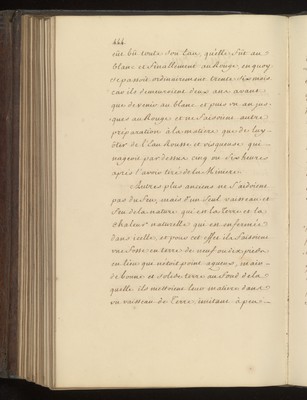 444.
eût bû toute son eau, qu'elle fût au
blanc et finallement au Rouge, en quoy
se passoit ordinairement trente six mois
car ils demeuroient deux ans avant
que devenir au blanc, et puis un an jus-
ques au Rouge et ne faisoient autre
préparation à la matiere que de luy
ôter de l'eau Rousse et visqueuse qui
nageoit par dessus cinq ou six heures
après l'avoir tiré de la Miniere.
Autres plus anciens ne s'aidoient
pas du feu, mais d'un seul vaisseau et
feu de la nature qui est la terre et la
chaleur naturelle qui est enfermée
dans icelle, et pour cet effet ils faisoient
une fosse en terre de neuf ou dix pieds
en lieu que n'étoit point aqueux, mais
de bonne et solide terre au fond de la
quelle ils mettoient leur matiere dans
un vaisseau de Terre, imitant à peu